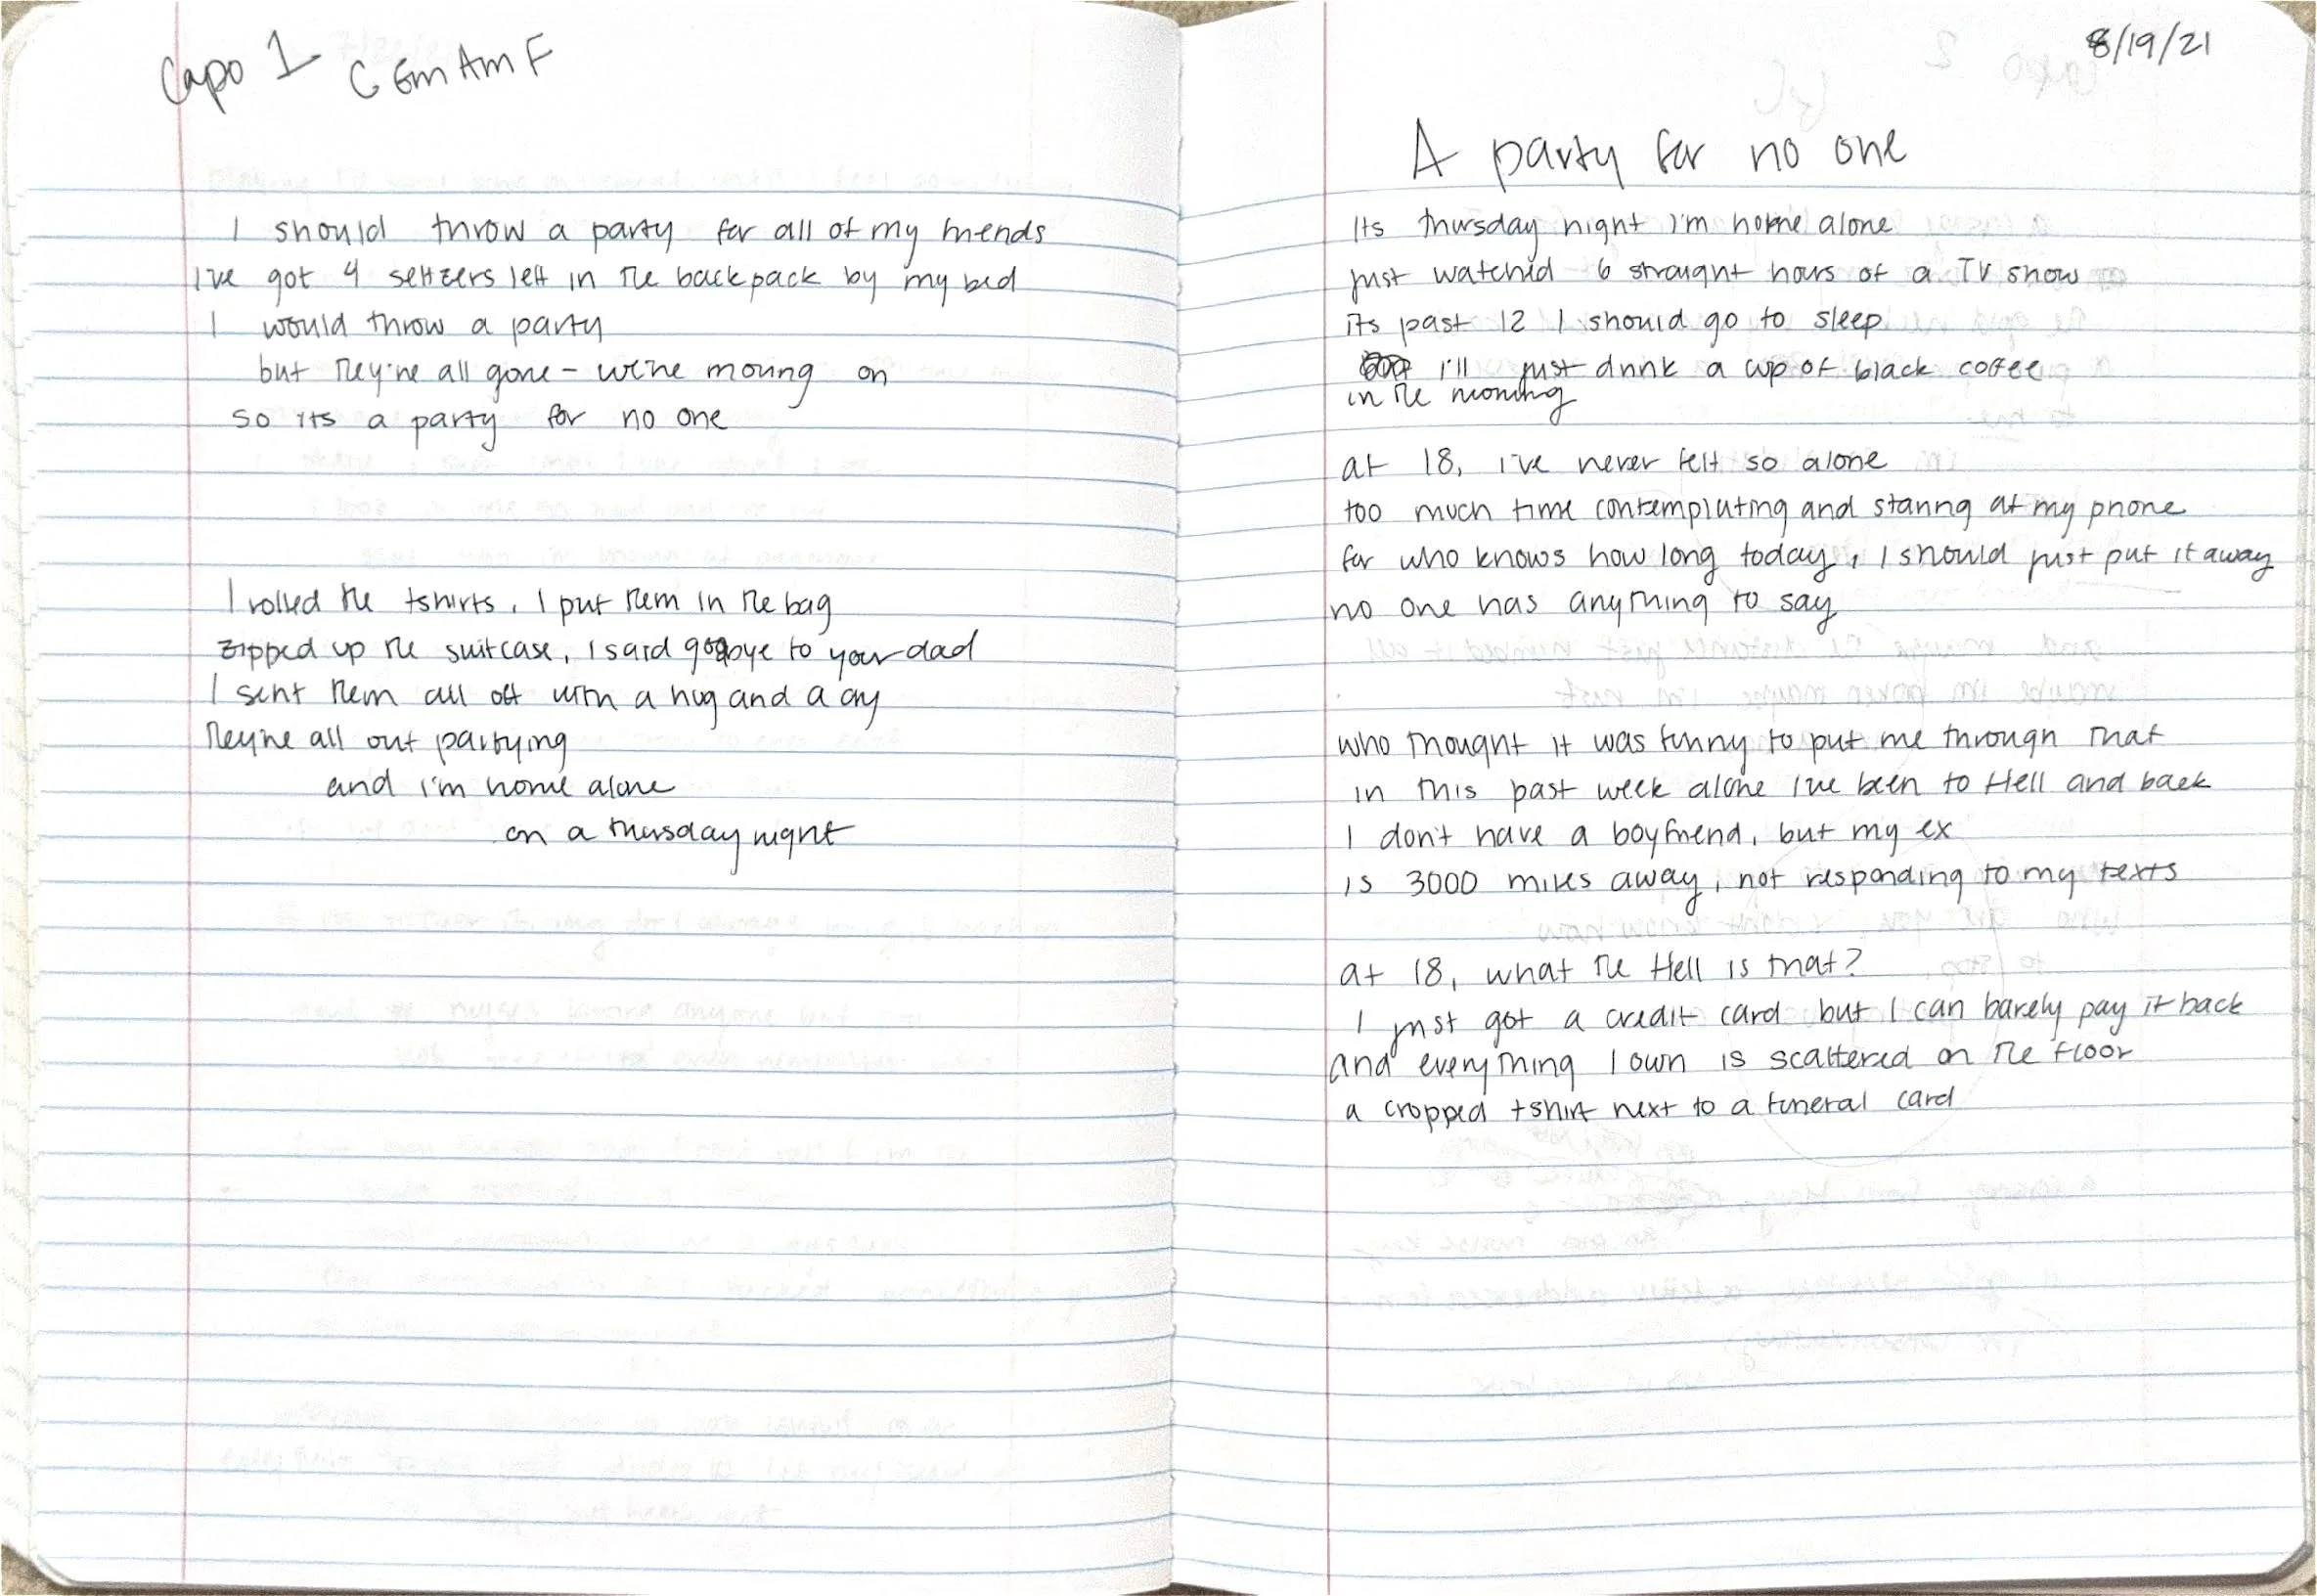 Capo 1 C Em Am F
I should throw a party for all of my friends
I've got 4 seltzers left in the backpack by my bed
I would throw a party
but they're all gone - we're moving on
so its a party for no one
I rolled the tshirts, I put them in the bag
zipped up the suitcase, I said goodbye to your dad
I sent them all off with a hug and a cry
they're all out partying
and i'm home alone
on a thursday night
8/19/21
A party for no one
Its thursday night i'm home alone
just watched 6 straight hours of a TV show
its past 12 I should go to sleep
i'll just drink a cup of black coffee
in the morning
at 18, i've never felt so alone
too much time contemplating and staring at my phone
for who knows how long today, I should just put it away
no one has anything to say
who thought it was funny to put me through that
in this past week alone I've been to Hell and back
I don't have a boyfriend, but my ex
is 3000 miles away, not responding to my texts
at 18, what the Hell is that?
I just got a credit card but I can barely pay it back
and everything I own is scattered on the floor
a cropped tshirt next to a funeral card